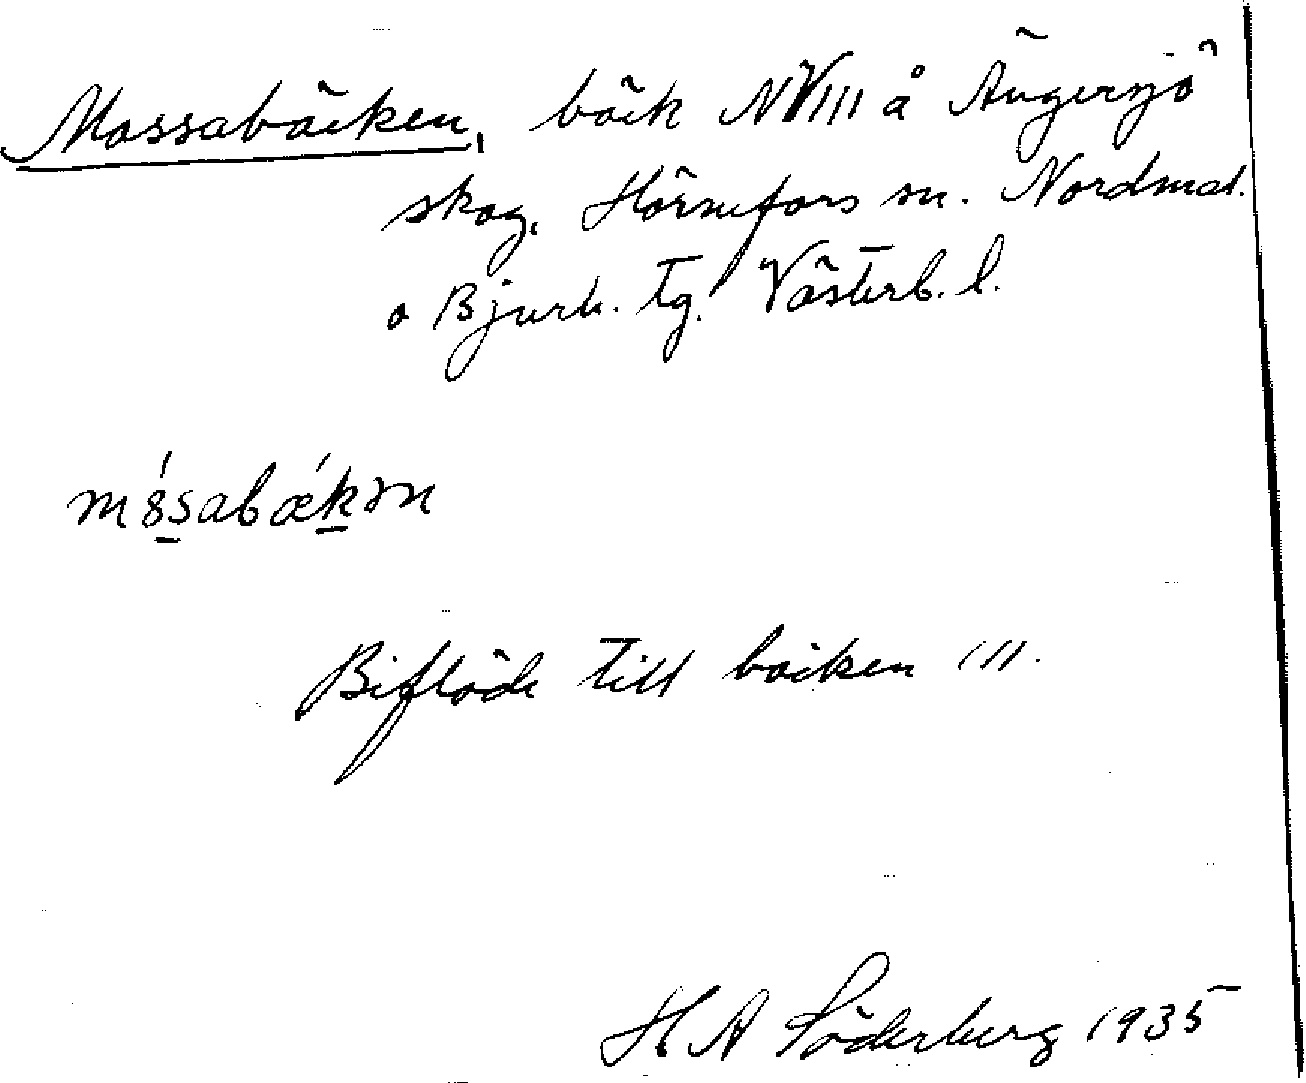 Mossabäcken, bäck NVIII å Ängersjö
skog. Hörnefors sn. Nordmal.
o Bjurh. tg. Västerb. l.
Biflöde till bäcken III.
H A Söderberg 1935